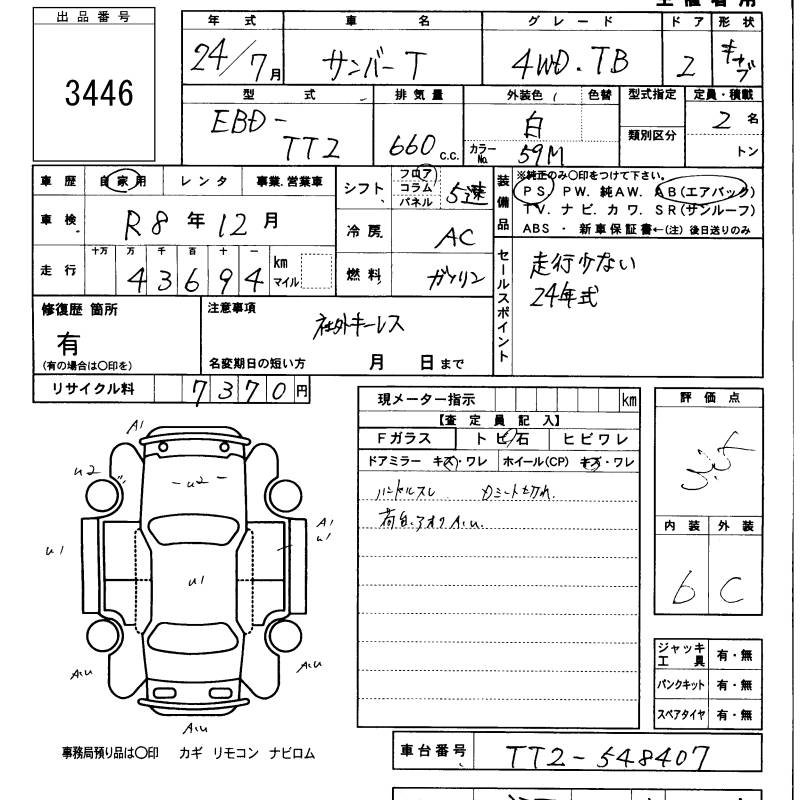 出品番号
3446
年式 車名 グレード ドア 形状
24/7月 サンバーT 4WD.TB 2 キャブ
型式 排気量 外装色 色替 型式指定 定員・積載
EBD-TT2 660c.c. 白 類別区分 2名
カラーNo. 59M トン
車歴 自家用 レンタ 事業.営業車
車検 R8年12月
走行 十万 万 千 百 十 一
43694 km マイル
シフト フロア コラム パネル 5速
冷房 AC
燃料 ガソリン
装備品
※純正のみ〇印をつけて下さい。
PS PW. 純AW. AB(エアバック)
TV. ナビ. カワ. SR(サンルーフ)
ABS ・ 新車保証書←(注) 後日送りのみ
セールスポイント
走行少ない
24年式
修復歴 箇所
有
(有の場合は〇印を)
注意事項
社外キーレス
名変期日の短い方 月 日まで
リサイクル料 7370円
現メーター指示 km
【査定員記入】
Fガラス トビ石 ヒビワレ
ドアミラー キズ・ワレ ホイール(CP) キズ・ワレ
ハンドルスレ
荷台
評価点
内装 外装
C
A1
u2
-u2-
A1
u1
u1
u1
A.u
A.u
A.u
ジャッキ工具 有・無
パンクキット 有・無
スペアタイヤ 有・無
事務局預り品は〇印 カギ リモコン ナビロム
車台番号 TT2-548407